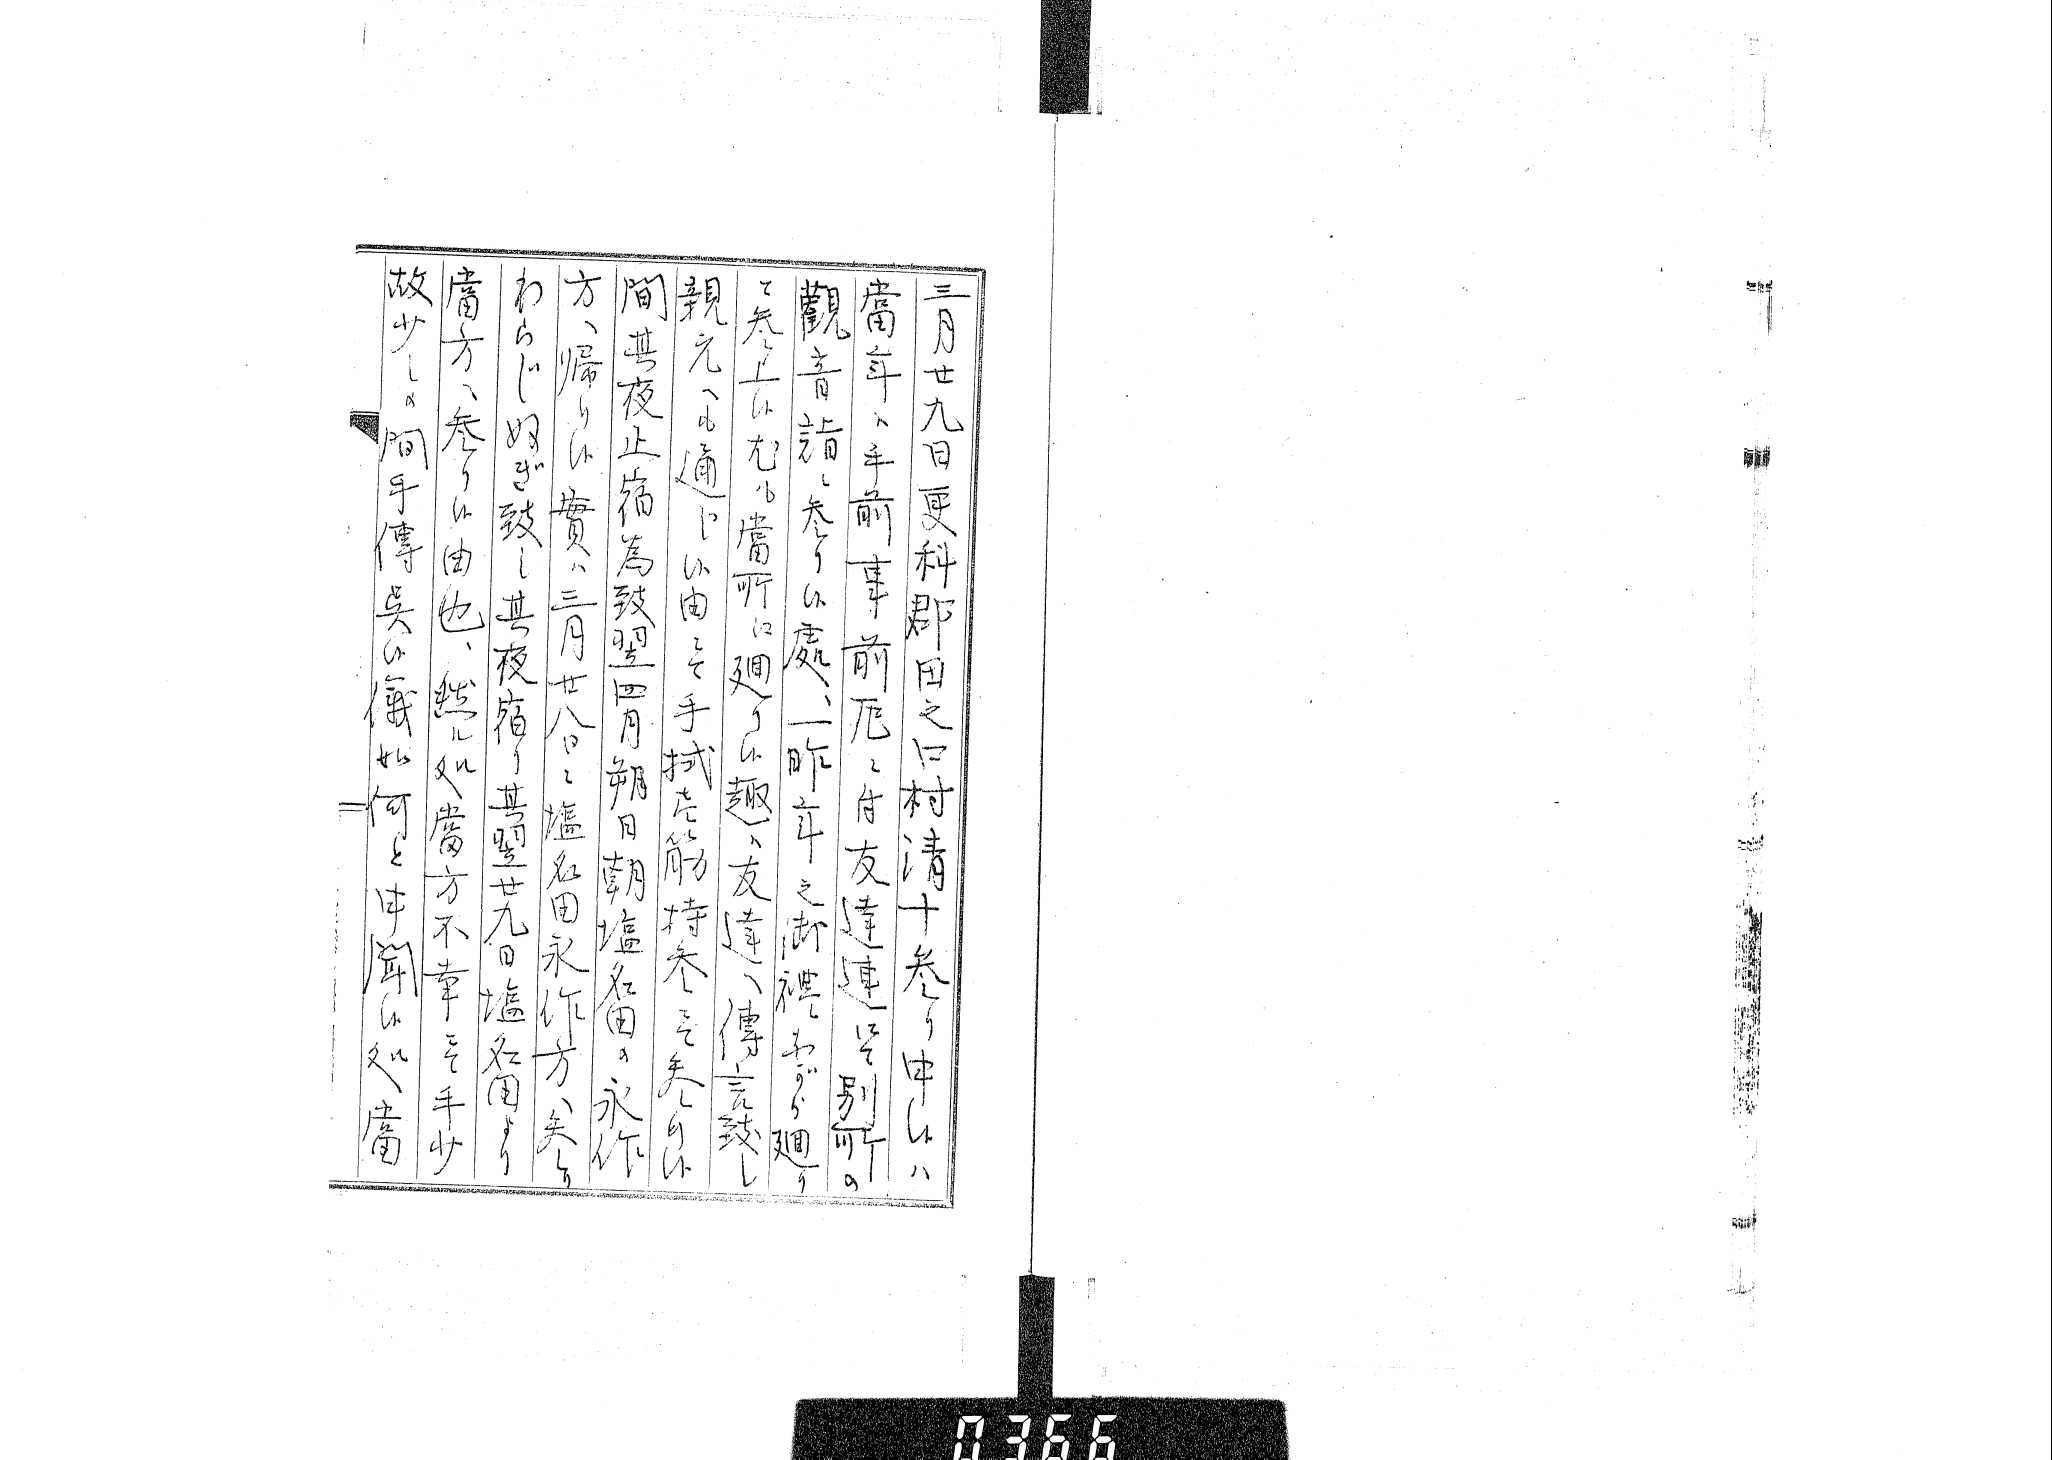 三月廿九日更科郡田之口村清十参り申候ハ
當年ハ手前事前厄ニ付友達連ニて別所の
觀音詣ニ参り候處、一昨年之御禮ながら廻り
て参上候尤も當所に廻り候趣ハ友達へ傳言致し
親元へも通じ候由ニて手拭壱筋持参ニて参り候
間其夜止宿為致翌四月朔日朝塩名田の永作
方へ帰り候實ハ三月廿八日ニ塩名田永作方へ参り
わらじぬぎ致し其夜宿り其翌廿九日塩名田より
當方へ参り候由也、然ル処當方不幸ニて手少
故少しの間手傳呉候儀如何と申聞候処當
0366